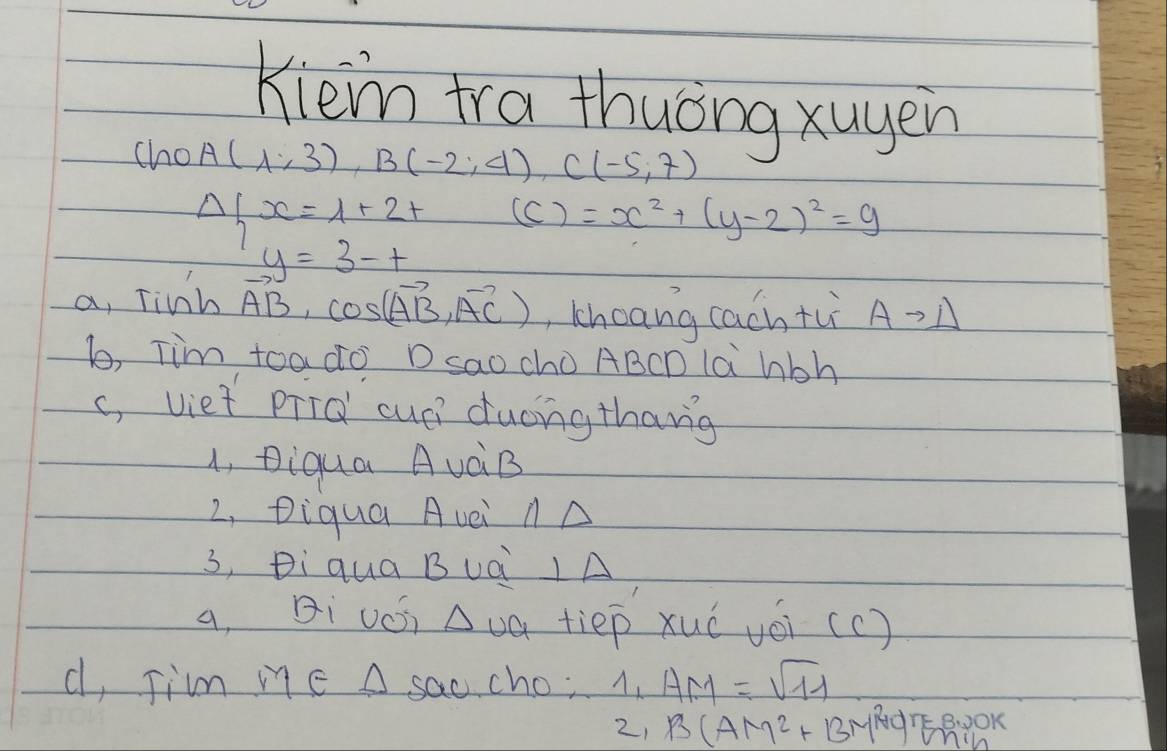 Kiểm tra thường xuyên
Cho A(1;3), B(-2;4), C(-5;7)
Δ{ x = 1+2t (C) = x² + (y-2)² = 9
y = 3-t
a, Tính AB, cos(AB, AC), khoảng cách từ A → Δ
b, Tìm toạ độ D sao cho ABCD là hbh
c, Viết PTTQ của đường thẳng
1, Đi qua A và B
2, Đi qua A và // Δ
3, Đi qua B và ⊥ Δ
4, Đi với Δ và tiếp xúc với (C)
d, Tìm M ∈ Δ sao cho: 1, AM = √11
2, B(AM² + BM²) min
NOTEBOOK